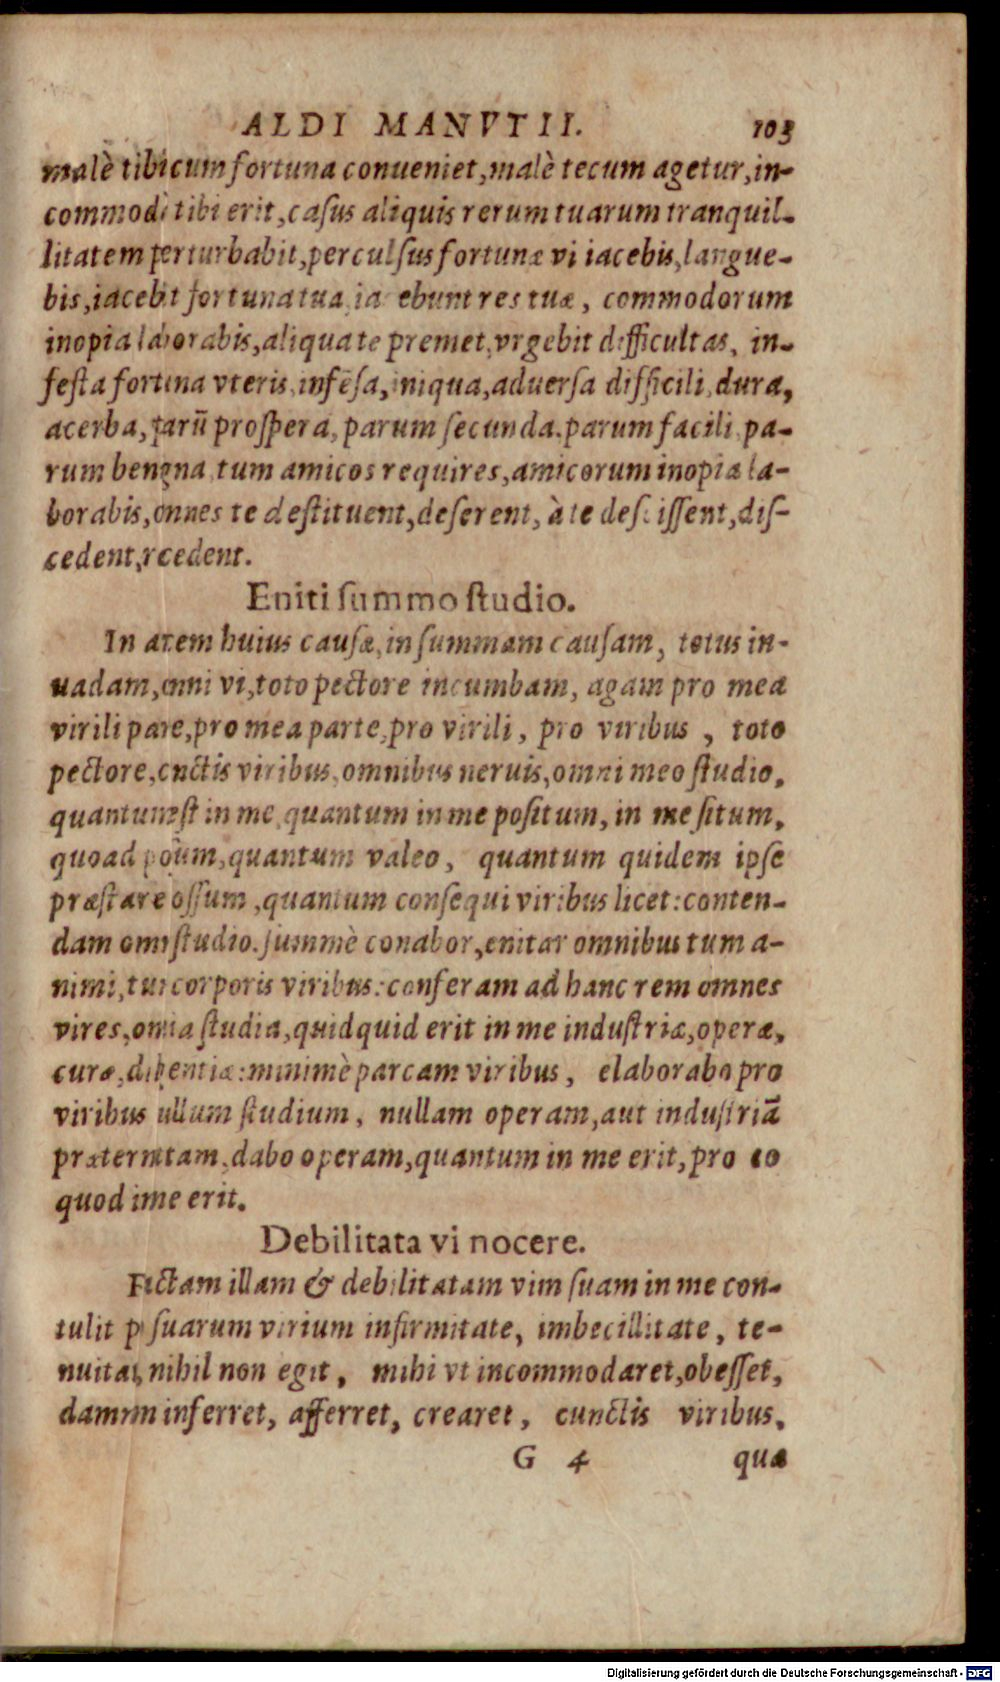 ALDI MANVTII. 103
malè tibi cum fortuna conueniet, malè tecum agetur, in-
commodè tibi erit, casus aliquis rerum tuarum tranquil-
litatem perturbabit, perculsus fortunæ vi iacebis, langue-
bis, iacebit fortuna tua, ia ebunt res tuæ, commodorum
inopia laborabis, aliqua te premet, vrgebit difficultas, in-
festa fortuna vteris, infēsa, iniqua, aduersa difficili, dura,
acerba, parū prospera, parum secunda. parum facili, pa-
rum bengna, tum amicos requires, amicorum inopia la-
borabis, omnes te destituent, deserent, à te desc issent, dis-
cedent, rcedent.
Eniti summo studio.
In arem huius causæ, in summam causam, totus in-
uadam, omni vi, toto pectore incumbam, agam pro mea
virili pare, pro mea parte, pro virili, pro viribus, toto
pectore, cnctis viribus, omnibus neruis, omni meo studio,
quantumst in me, quantum in me positum, in me situm,
quoad poßum, quantum valeo, quantum quidem ipse
præstare ossum, quantum consequi viribus licet: conten-
dam omi studio. summè conabor, enitar omnibus tum a-
nimi, tum corporis viribus: conferam ad hanc rem omnes
vires, omia studia, quidquid erit in me industriæ, operæ,
curæ, diligentiæ: minimè parcam viribus, elaborabo pro
viribus ullum studium, nullam operam, aut industriā
prætermitam, dabo operam, quantum in me erit, pro eo
quod ime erit.
Debilitata vi nocere.
Fictam illam & debilitatam vim suam in me con-
tulit p suarum virium infirmitate, imbecillitate, te-
nuitat, nihil non egit, mihi vt incommodaret, obesset,
damnm inferret, afferret, crearet, cunctis viribus,
G 4 qua
Digitalisierung gefördert durch die Deutsche Forschungsgemeinschaft - DFG